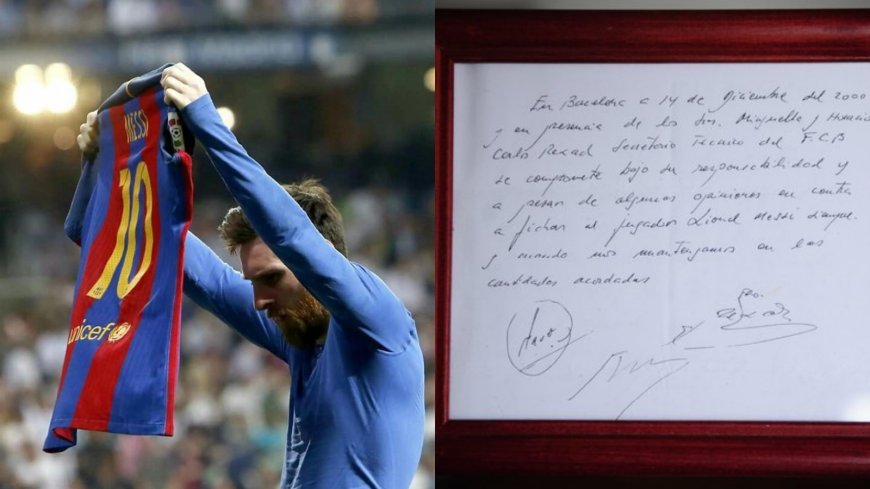 MESSI
10
unicef
En Barcelona a 14 de Diciembre del 2000
y en presencia de los Srs. Minguella y Horacio
Carlos Rexach Secretario Tecnico del F.C.B
se compromete bajo su responsabilidad y
a pesar de algunas opiniones en contra
a fichar al jugador Lionel Messi siempre
y cuando nos mantengamos en las
cantidades acordadas